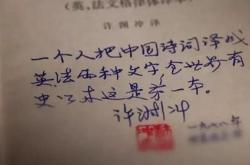 (英、法文格律体译本)
许渊冲译
一个人把中国诗词译成
英法两种文字,全世界有
史以来这是第一本。
许渊冲
一九八八年